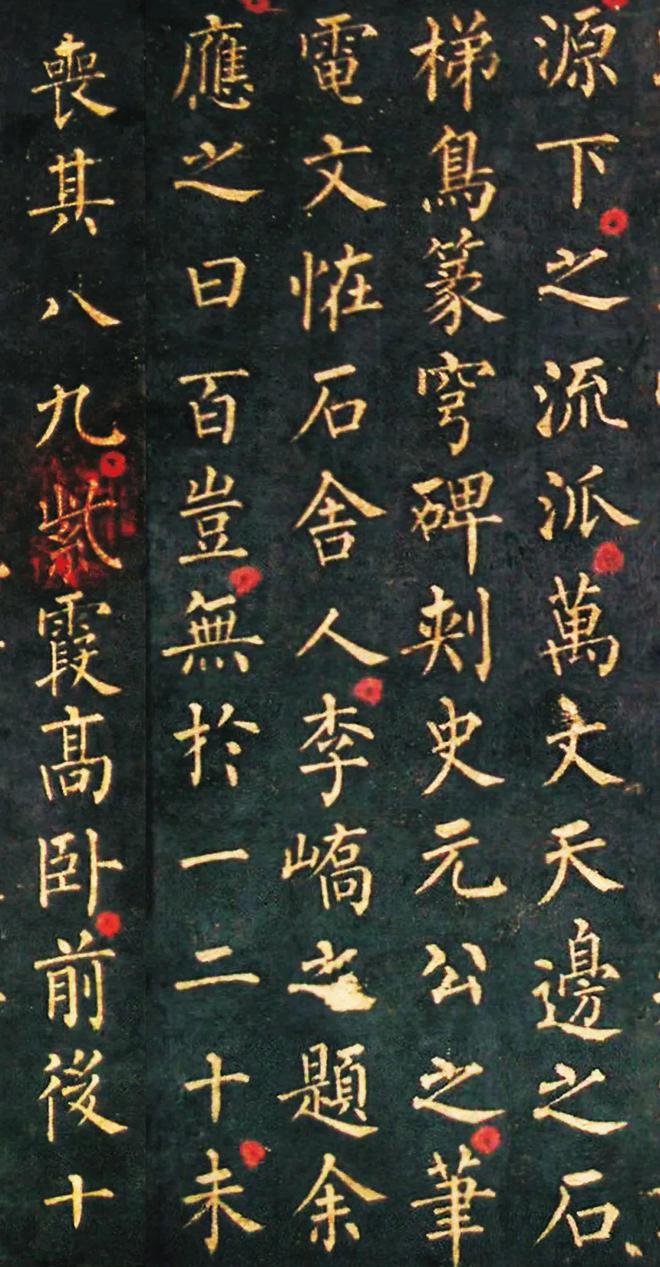 源下之流派萬丈天邊之石
梯鳥篆穹碑刾史元公之筆
電文恠石舍人李嶠之題余
應之曰百豈無於一二十未
喪其八九紫霞高卧前後十